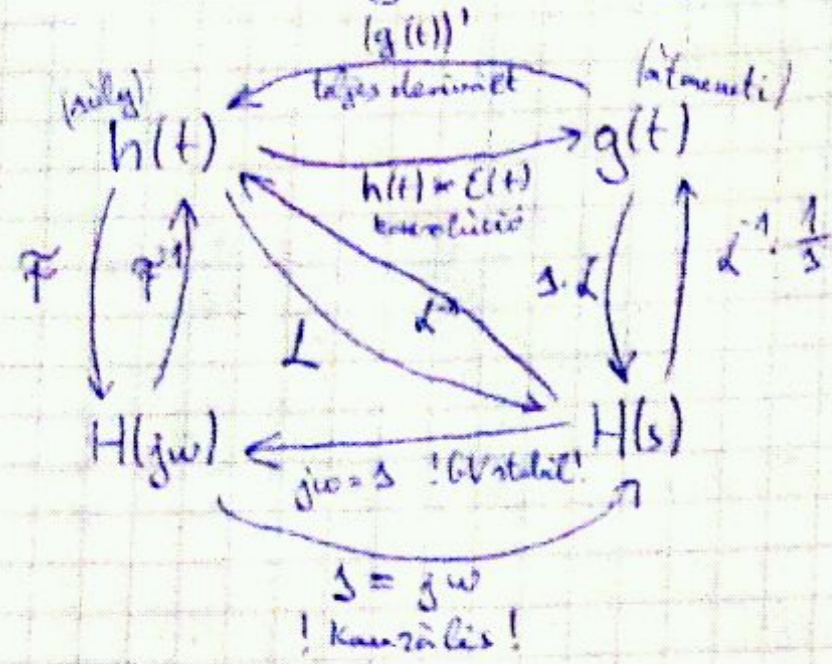 (g(t))'
(súly)
tages derivált
(átmeneti)
h(t)
g(t)
h(t) * ε(t)
konvolúció
F
F⁻¹
L
L⁻¹
s·L
L⁻¹·1/s
H(jω)
H(s)
jω = s !GV stabil!
s = jω
! Kauzális !